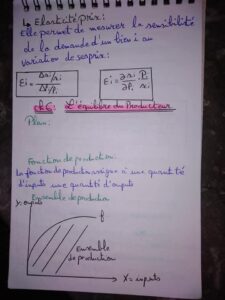 ↳ Elasticité prix:
Elle permet de mesurer la sensibilité
de la demande d'un bien i au
variation de ses prix:
Ei = (Δxi/xi)/(ΔPi/Pi)
Ei = ∂xi/∂Pi Pi/xi
ch 6: L'équilibre du Producteur
Plan:
Fonction de production:
La fonction de production assigne à une quantité
d'inputs une quantité d'outputs
Ensemble de production
y: outputs
f
Ensemble
de production
X = inputs